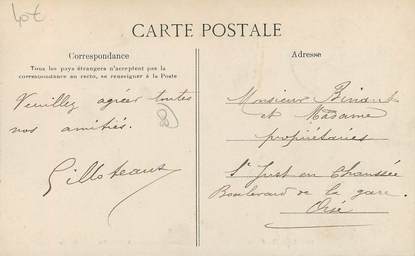 40€
CARTE POSTALE
Correspondance
Tous les pays étrangers n'acceptent pas la
correspondance au recto, se renseigner à la Poste
Veuillez agréer toutes
nos amitiés.
Gilloteaux
Adresse
Monsieur Binant
et Madame
propriétaires
St Just en Chaussée
Boulevard de la gare.
Oise